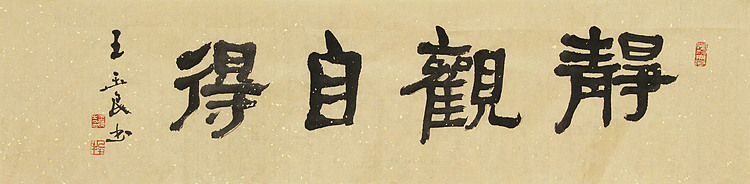 靜觀自得
王玉良书